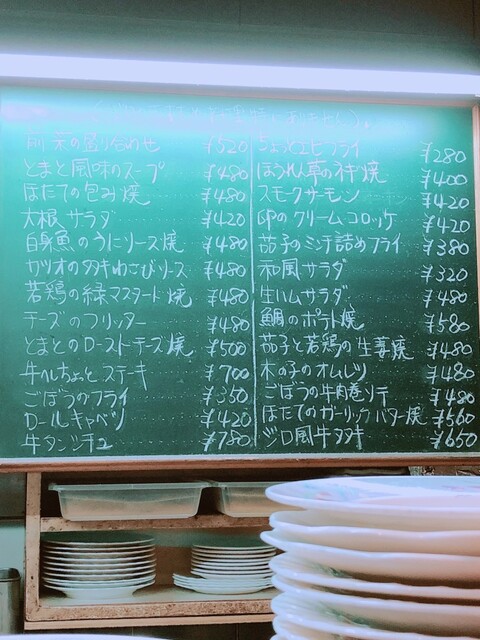 前菜の盛り合わせ ¥520
とまと風味のスープ ¥480
ほたての包み焼 ¥480
大根サラダ ¥420
白身魚のうにソース焼 ¥480
カツオのタタキわさびソース ¥480
若鶏の緑マスタード焼 ¥480
チーズのフリッター ¥480
とまとのローストチーズ焼 ¥500
牛へちょっとステーキ ¥700
ごぼうのフライ ¥350
ロールキャベツ ¥420
牛タンシチュ ¥780
ちょっとエビフライ ¥280
ほうれん草の玉子焼 ¥400
スモークサーモン ¥420
卵のクリームコロッケ ¥420
茄子のミンチ詰めフライ ¥380
和風サラダ ¥320
生ハムサラダ ¥480
鯛のポテト焼 ¥580
茄子と若鶏の生姜焼 ¥480
木の子のオムレツ ¥480
ごぼうの牛肉巻ソテ ¥480
ほたてのガーリックバター焼 ¥560
ジロ風牛タタキ ¥650